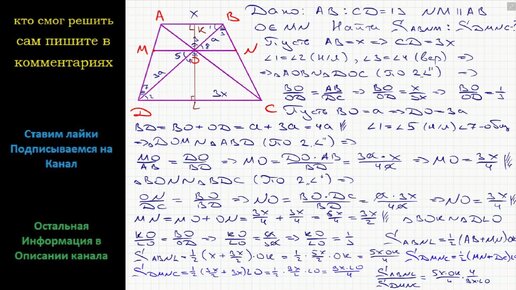 кто смог решить
сам пишите в
комментариях
Ставим лайки
Подписываемся на
Канал
Остальная
Информация в
Описании канала
A X B
K
M O N
3a a
D L 3x C
Дано: AB:CD=1:3 NM||AB
O∈MN Найти S ABNM : S DMNC
Пусть AB=x ⇒ CD=3x
∠1=∠2 (н/л), ∠3=∠4 (вер) ⇒
⇒ △AOB∾△DOC (по 2 ∠) ⇒
⇒ BO/OD = AB/DC ⇒ BO/OD = x/3x ⇒ BO/OD = 1/3
Пусть BO=a ⇒ DO=3a
BD=BO+OD=a+3a=4a ∠1=∠5 (н/л) ∠7-общ
⇒ △DOM∾△ABD (по 2 ∠) ⇒
MO/AB = DO/BD ⇒ MO = DO·AB/BD = 3a·x/4a ⇒ MO = 3x/4
△BON∾△BDC (по 2 ∠) ⇒
ON/DC = BO/BD ⇒ NO = BO·DC/BD = a·3x/4a ⇒ NO = 3x/4
MN=MO+ON= 3x/4 + 3x/4 = 6x/4 = 3x/2 △BOK∾△DLO
KO/LO = BO/OD ⇒ KO/LO = 1/3 S ABNL = 1/2 (AB+MN)·OK
S ABNL = 1/2 (x+3x/2)·OK = 1/2·5x/2·OK = 5x·OK/4 S DMNC = 1/2 (MN+DC)·LO
S DMNC = 1/2 (3x/2+3x)·LO = 1/2·9x/2·LO = 9x·LO/4 S ABNL/S DMNC = 5x·OK·4